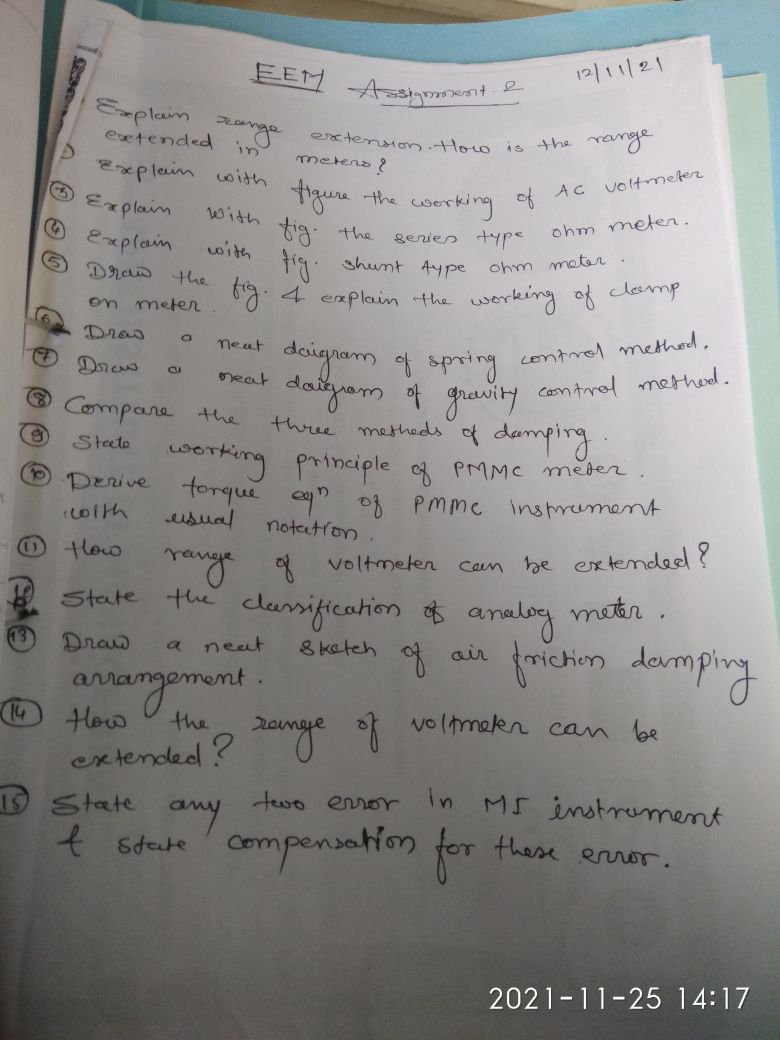 EEM Assignment. 2 12/11/21
Explain range extension. How is the range
extended in meters?
Explain with figure the working of AC voltmeter
③ Explain with fig. the series type ohm meter.
④ Explain with fig. shunt type ohm meter.
⑤ Draw the fig. & explain the working of clamp
on meter.
⑥ Draw a neat daigram of spring control method.
⑦ Draw a neat daigram of gravity control method.
⑧ Compare the three methods of damping.
⑨ State working principle of PMMC meter.
⑩ Derive torque eqn of PMMC instrument
with usual notation.
⑪ How range of voltmeter can be extended?
State the classification of analog meter.
⑬ Draw a neat sketch of air friction damping
arrangement.
⑭ How the range of voltmeter can be
extended?
⑮ State any two error in MI instrument
& state compensation for these error.
2021-11-25 14:17